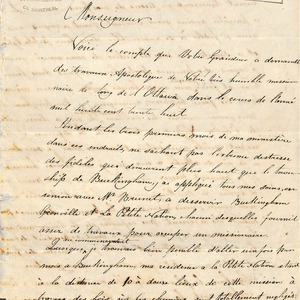 Monseigneur
Voici le compte que Votre Grandeur a demandé
des travaux Apostolique de Votre très humble mission
naire le long de l'Ottawa dans le cours de l'année
mil huit cent trente huit
Pendant les trois premiers mois de ma ministère
dans ces endroits, ne sachant pas l'extreme detresse
des fideles qui demeurent plus haut que le town
ship de Buckingham, j'ai appliqué tous mes soins, en
commun avec Mr Brunet, a desservir Buckingham
Grenville et La Petite Nation, chacun desquelles fournit
assez de travaux pour occuper un missionnaire
Quoique j'ai bien possible d'aller une fois par
mois a Buckingham, ma résidence a la Petite Nation étant
à la distance de 8 a douze lieux de cette mission a
travers des bois